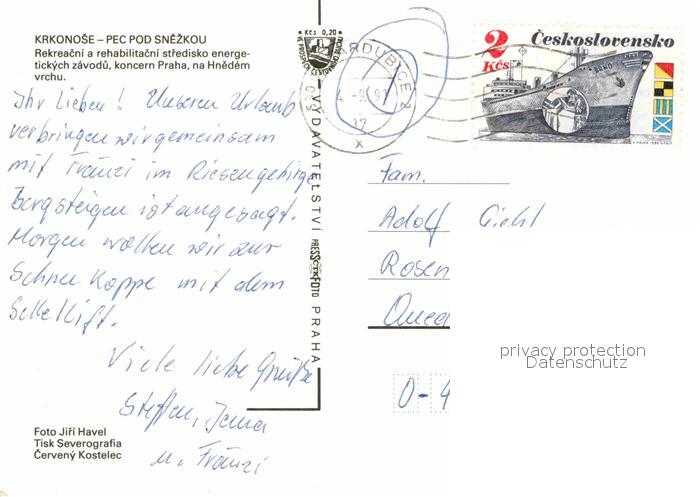 KRKONOŠE – PEC POD SNĚŽKOU
Rekreační a rehabilitační středisko energe-
tických závodů, koncern Praha, na Hnědém
vrchu.
Ihr Lieben! Unseren Urlaub
verbringen wir gemeinsam
mit Fränzi im Riesengebirge
Bergsteigen ist angesagt.
Morgen wollen wir zur
Schneekoppe mit dem
Sessellift.
Viele liebe Grüße
Steffen, Jana
u. Fränzi
Foto Jiří Havel
Tisk Severografia
Červený Kostelec
Kčs 0,20
VYDAVATELSTVÍ PRESSFOTO PRAHA
PARDUBICE 2
2
Kčs
Československo
Fam.
Adolf
Rosen
Qued
privacy protection
Datenschutz
O-4